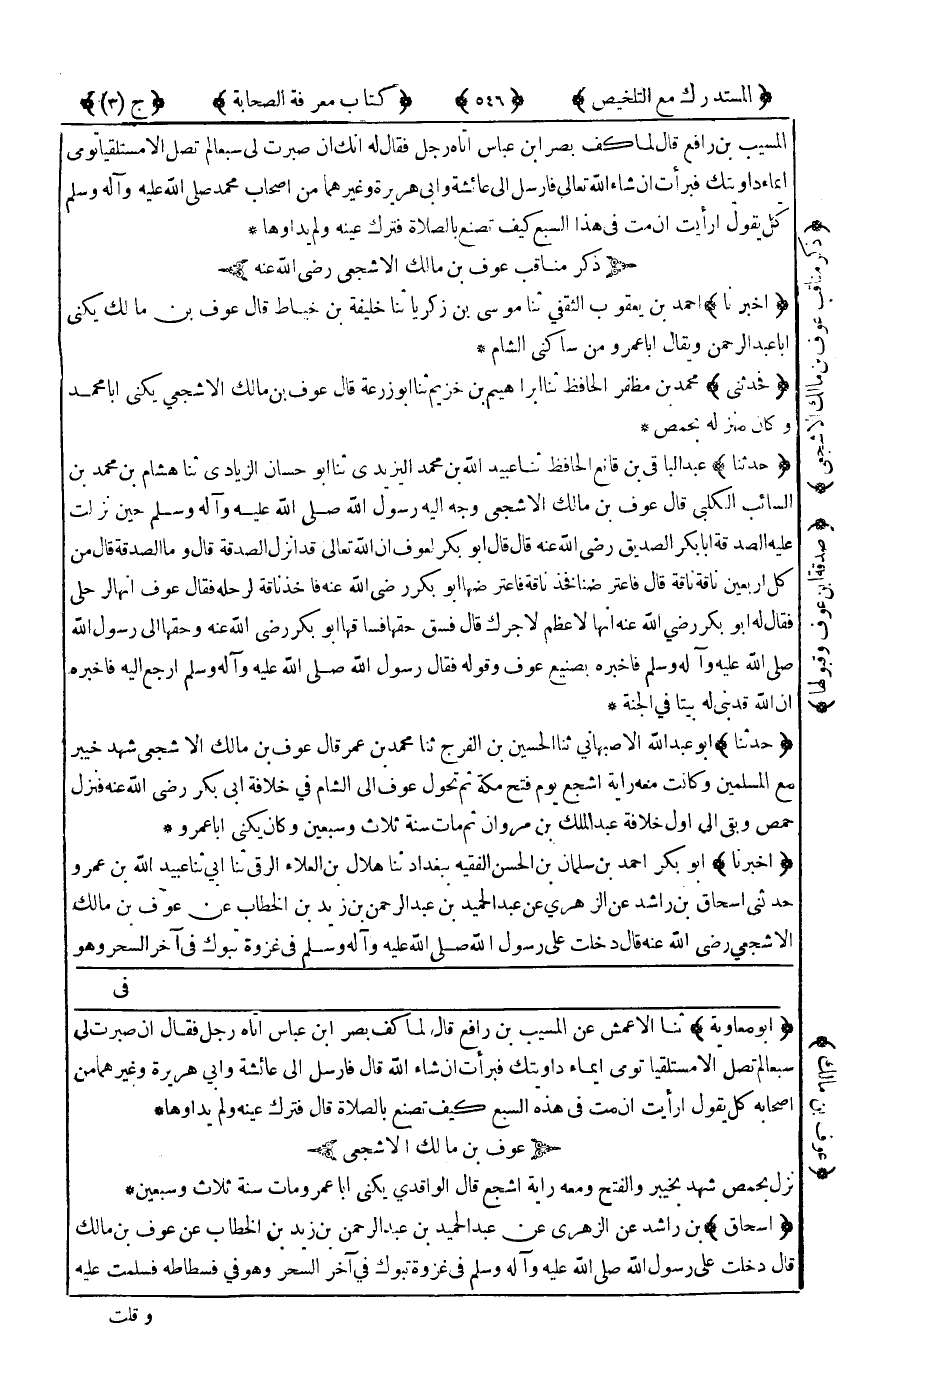 ﴿ المستدرك مع التلخيص ﴾ ﴿ ٥٤٦ ﴾ ﴿ كتاب معرفة الصحابة ﴾ ﴿ ج (٣) ﴾
المسيب بن رافع قال لما كف بصر ابن عباس اتاه رجل فقال له انك ان صبرت لى سبعا لم تصل الا مستلقيا تومى
ايماء داويتك فبرأت ان شاء الله تعالى فارسل الى عائشة وابى هريرة وغيرهما من اصحاب محمد صلى الله عليه وآله وسلم
كل يقول ارأيت ان مت فى هذا السبع كيف تصنع بالصلاة فترك عينه ولم يداوها *
ذكر مناقب عوف بن مالك الاشجعى رضى الله عنه
﴿ اخبرنا ﴾ احمد بن يعقوب الثقفي ثنا موسى بن زكريا ثنا خليفة بن خياط قال عوف بن مالك يكنى
ابا عبد الرحمن ويقال ابا عمرو من ساكنى الشام *
﴿ حدثنى ﴾ محمد بن مظفر الحافظ ثنا ابراهيم بن خزيم ثنا ابو زرعة قال عوف بن مالك الاشجعي يكنى ابا محمد
وكان منزله بحمص *
﴿ حدثنا ﴾ عبد الباقى بن قانع الحافظ ثنا عبيد الله بن محمد اليزيدى ثنا ابو حسان الزيادى ثنا هشام بن محمد بن
السائب الكلبى قال عوف بن مالك الاشجعى وجه اليه رسول الله صلى الله عليه وآله وسلم حين نزلت
عليه الصدقة ابا بكر الصديق رضى الله عنه قال قال ابو بكر لعوف ان الله تعالى قد انزل الصدقة قال وما الصدقة قال من
كل اربعين ناقة ناقة قال فاعترضنا فخذ ناقة فاعترضها ابو بكر رضى الله عنه فاخذ ناقة لرحله فقال عوف انها لرحلى
فقال له ابو بكر رضي الله عنه انها لاعظم لاجرك قال فسق حقها فساقها ابو بكر رضى الله عنه وحقها الى رسول الله
صلى الله عليه وآله وسلم فاخبره بصنيع عوف وقوله فقال رسول الله صلى الله عليه وآله وسلم ارجع اليه فاخبره
ان الله قد بنى له بيتا في الجنة *
﴿ حدثنا ﴾ ابو عبد الله الاصبهاني ثنا الحسين بن الفرج ثنا محمد بن عمر قال عوف بن مالك الاشجعى شهد خيبر
مع المسلمين وكانت معه راية اشجع يوم فتح مكة ثم تحول عوف الى الشام في خلافة ابى بكر رضى الله عنه فنزل
حمص وبقى الى اول خلافة عبد الملك بن مروان ثم مات سنة ثلاث وسبعين وكان يكنى ابا عمرو *
﴿ اخبرنا ﴾ ابو بكر احمد بن سلمان بن الحسن الفقيه ببغداد ثنا هلال بن العلاء الرقى ثنا ابي ثنا عبيد الله بن عمرو
حدثنى اسحاق بن راشد عن الزهرى عن عبد الحميد بن عبد الرحمن بن زيد بن الخطاب عن عوف بن مالك
الاشجعى رضى الله عنه قال دخلت على رسول الله صلى الله عليه وآله وسلم فى غزوة تبوك فى آخر السحر وهو
فى
﴿ ابو معاوية ﴾ ثنا الاعمش عن المسيب بن رافع قال لما كف بصر ابن عباس اتاه رجل فقال ان صبرت لى
سبعا لم تصل الا مستلقيا تومى ايماء داويتك فبرأت ان شاء الله قال فارسل الى عائشة وابي هريرة وغيرهما من
اصحابه كل يقول ارأيت ان مت فى هذه السبع كيف تصنع بالصلاة قال فترك عينه ولم يداوها*
عوف بن مالك الاشجعى
نزل بحمص شهد بخيبر والفتح ومعه راية اشجع قال الواقدي يكنى ابا عمرو مات سنة ثلاث وسبعين*
﴿ اسحاق ﴾ بن راشد عن الزهرى عن عبد الحميد بن عبد الرحمن بن زيد بن الخطاب عن عوف بن مالك
قال دخلت على رسول الله صلى الله عليه وآله وسلم فى غزوة تبوك في آخر السحر وهو في فسطاطه فسلمت عليه
وقلت
﴿ ذكر مناقب عوف بن مالك الاشجعى ﴾
﴿ صدقة ابن عوف وقبولها ﴾
﴿ عوف بن مالك ﴾